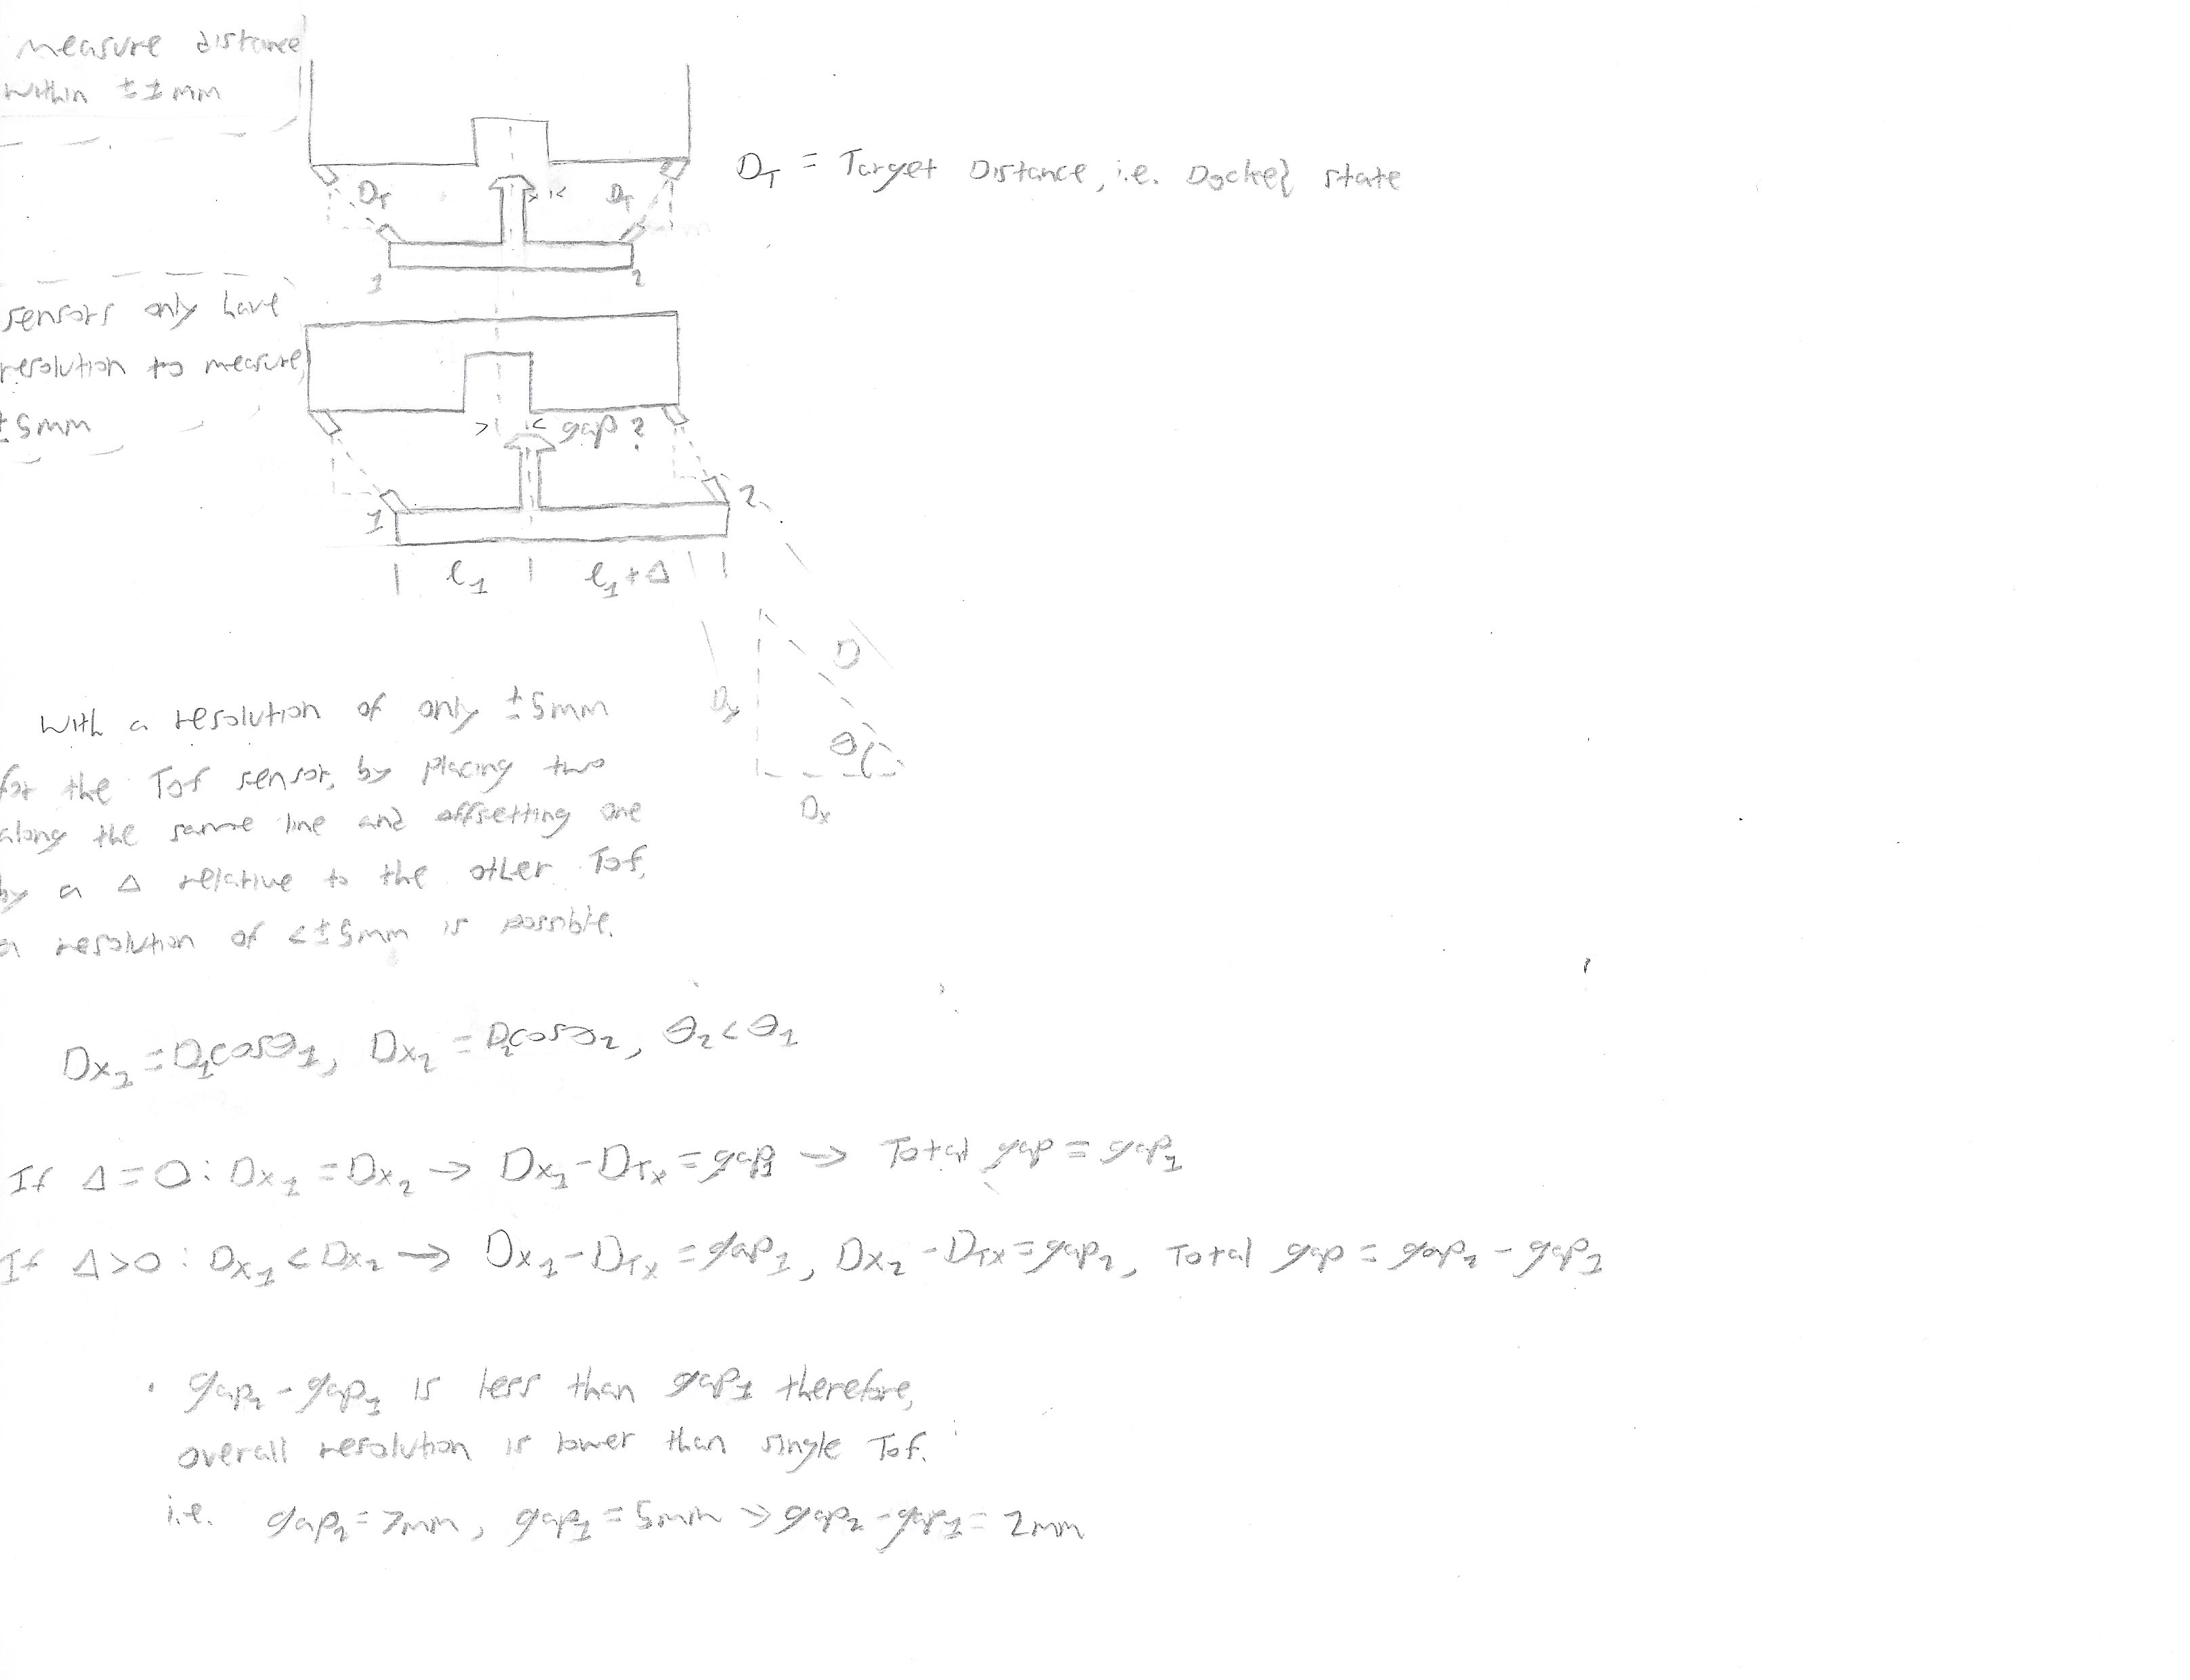 measure distance
within ±1mm
D_T = Target Distance, i.e. Docked state
D_T
D_T
> <
1
2
sensors only have
resolution to measure
±5mm
> < gap?
1
2
l_1
l_1+Δ
D
D_y
θ
D_x
With a resolution of only ±5mm
for the Tof sensor, by placing two
along the same line and offsetting one
by a Δ relative to the other Tof,
a resolution of <±5mm is possible.
Dx_1 = D_1cosθ_1, Dx_2 = D_2cosθ_2, θ_2<θ_1
If Δ=0: Dx_1 = Dx_2 → Dx_1-DTx = gap_1 → Total gap = gap_1
If Δ>0: Dx_1 < Dx_2 → Dx_1-DTx = gap_1, Dx_2-DTx = gap_2, Total gap = gap_2 - gap_1
· gap_2-gap_1 is less than gap_1 therefore,
overall resolution is lower than single Tof.
i.e. gap_2=7mm, gap_1=5mm → gap_2-gap_1=2mm